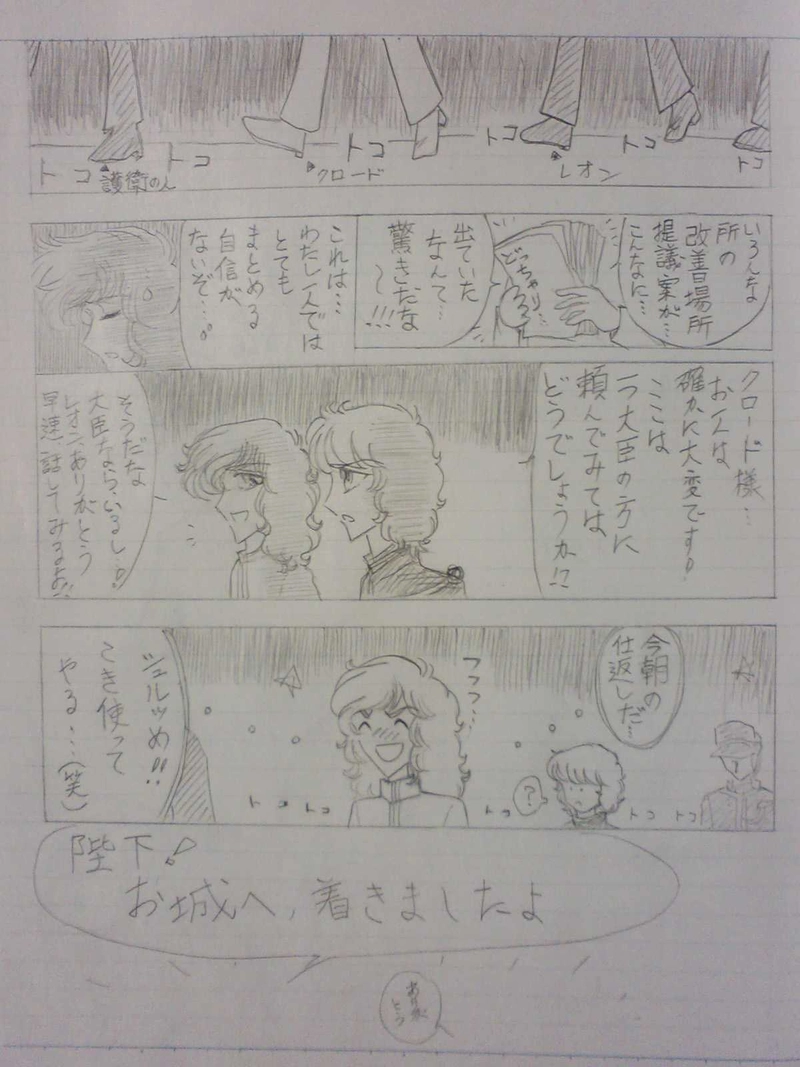 トコ
護衛の人
トコ
クロード
トコ
トコ
レオン
トコ
トコ
いろんな
所の
改善場所
提議案が…
こんなに…
どっちゃり…
出ていた
なんて…
驚きだな
〜!!!
これは…
わたし一人では
とても
まとめる
自信が
ないぞ…。
クロード様…
お一人は
確かに大変です!
ここは
一つ大臣の方に
頼んでみては
どうでしょうか!?
そうだな
大臣なら、いるし…!
レオン、ありがとう
早速、話してみるよ!!
今朝の
仕返しだ…
フフフ…
?
トコ
トコ
トコ
トコ
トコ
シュルツめ!!
こき使って
やる…(笑)
陛下!
お城へ、着きましたよ